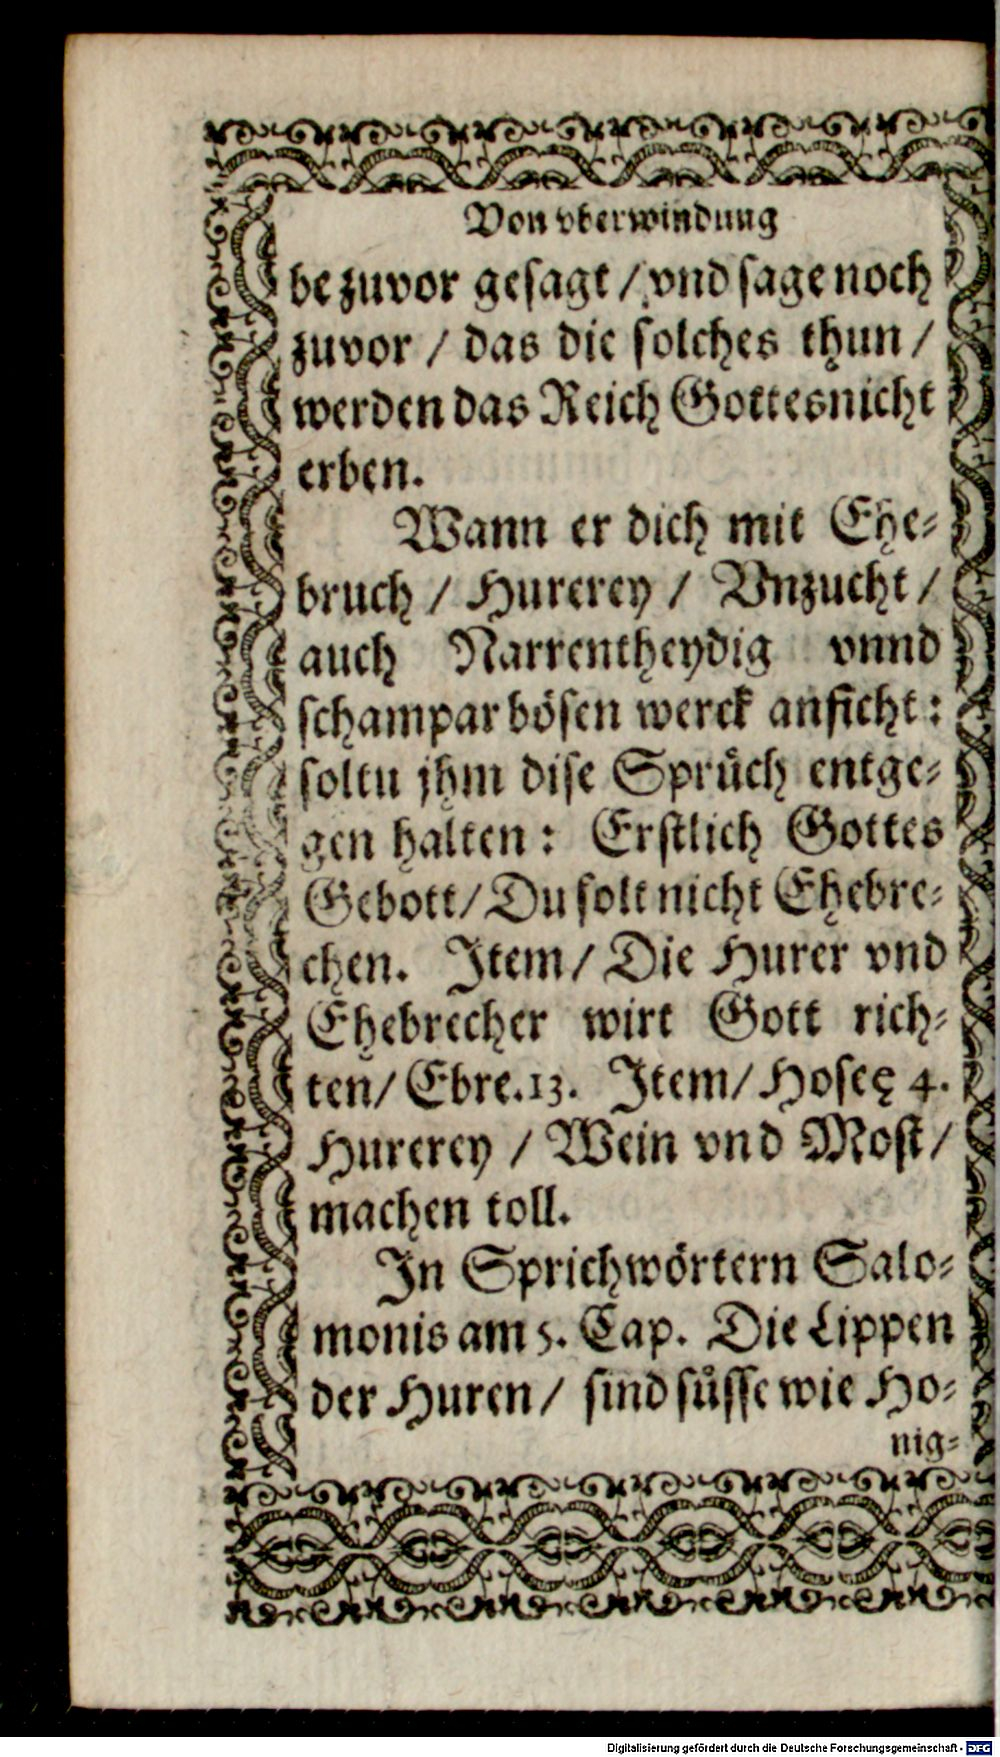 Von vberwindung
be zuvor gesagt / vnd sage noch
zuvor / das die solches thun /
werden das Reich Gottes nicht
erben.
Wann er dich mit Ehe⸗
bruch / Hurerey / Vnzucht /
auch Narrentheydig vnnd
schampar bösen werck anficht:
soltu jhm dise Sprüch entge⸗
gen halten: Erstlich Gottes
Gebott / Du solt nicht Ehebre⸗
chen. Item / Die Hurer vnd
Ehebrecher wirt Gott rich⸗
ten / Ebre. 13. Item / Hoseę 4.
Hurerey / Wein vnd Most /
machen toll.
In Sprichwörtern Salo⸗
monis am 5. Cap. Die Lippen
der Huren / sind süsse wie Ho⸗
nig⸗
Digitalisierung gefördert durch die Deutsche Forschungsgemeinschaft - DFG